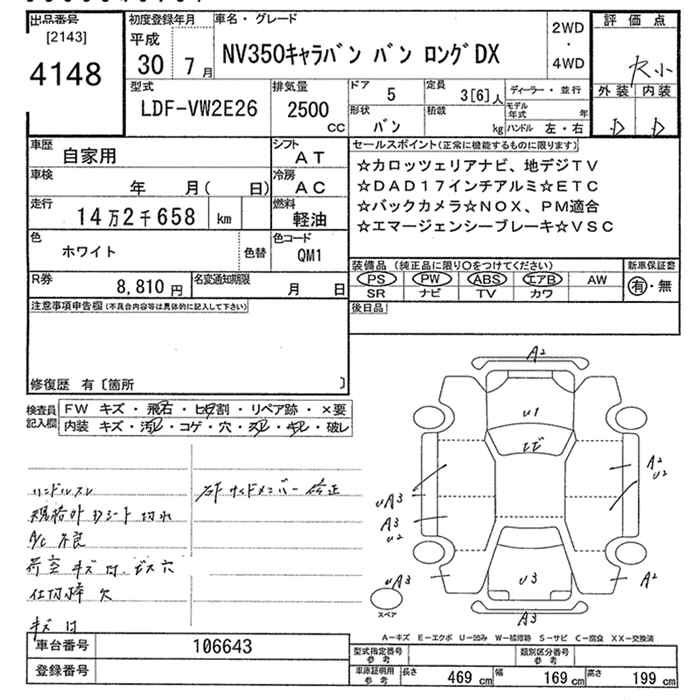 出品番号
[2143]
4148
初度登録年月
平成
30 7月
車名・グレード
NV350キャラバン バン ロングDX
2WD
・
4WD
評価点
大小
外装 内装
D D
型式
LDF-VW2E26
排気量
2500
CC
ドア
5
定員
3[6]人
ディーラー・並行
形状
バン
積載
kg
モデル
年式
年
ハンドル 左・右
車歴
自家用
シフト
AT
車検
年 月( 日)
冷房
AC
走行
14万2千658 km
燃料
軽油
色
ホワイト
色替
色コード
QM1
R券
8,810円
名変通知期限
月 日
セールスポイント(正常に機能するものに限ります)
☆カロッツェリアナビ、地デジTV
☆DAD17インチアルミ☆ETC
☆バックカメラ☆NOX、PM適合
☆エマージェンシーブレーキ☆VSC
装備品 (純正品に限り○をつけてください)
新車保証書
PS PW ABS エアB AW
SR ナビ TV カワ
有・無
後日品
注意事項申告欄(不具合内容等は具体的に記入して下さい)
修復歴 有〔箇所 〕
検査員
記入欄
FW キズ・飛石・ヒビ割・リペア跡・×要
内装 キズ・汚レ・コゲ・穴・スレ・キレ・破レ
ハンドルスレ
規格外Dシート切れ
A/C不良
荷室キズ汁ビス穴
仕切棒欠
キズ汁
サイドメンバー修正
A2
U1
ヒビ
A2
U2
UA3
A3
U2
UA3
U3
A2
A3
スペア
A－キズ E－エクボ U－凹み W－補修跡 S－サビ C－腐食 XX－交換済
車台番号
106643
登録番号
型式指定番号
参考
類別区分番号
参考
車庫証明用
参考
長さ 469 cm 幅 169 cm 高さ 199 cm